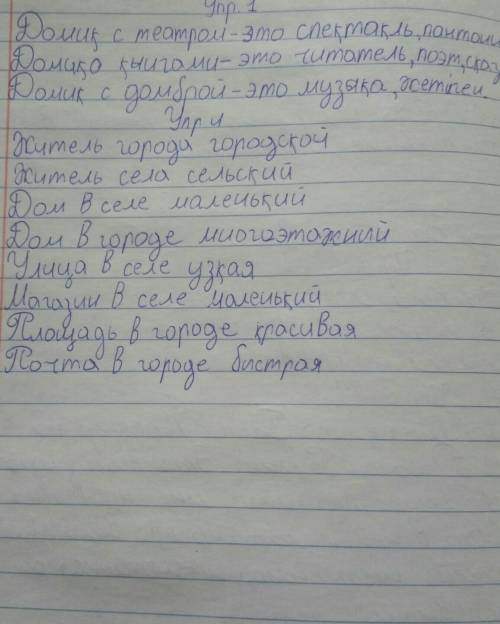 Упр. 1
Домик с театром-это спектакль, пантоми
Домиқақыигами-это читатель, поэт, сказ
Домик с домброй-это музыка, жетіген
Упр 4
Житель города городской
Житель села сельский
Дом в селе маленький
Дом в городе многоэтажний
Улица в селе узкая
Магазин в селе маленький
Площадь в городе красивая
Почта в городе бистрая